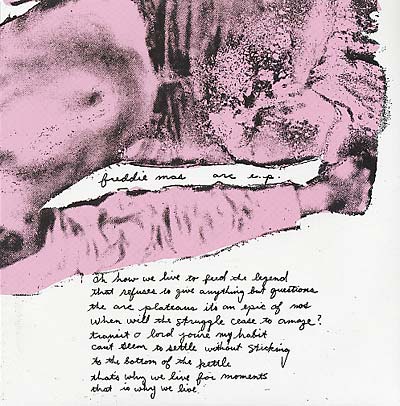 freddie mas arc e.p.
Oh how we live to feed the legend
that refuses to give anything but questions
the arc plateaus its an epic of nos
When will the struggle cease to amaze?
transit o lord youre my habit
cant seem to settle without sticking
to the bottom of the kettle
thats why we live for moments
that is why we live.